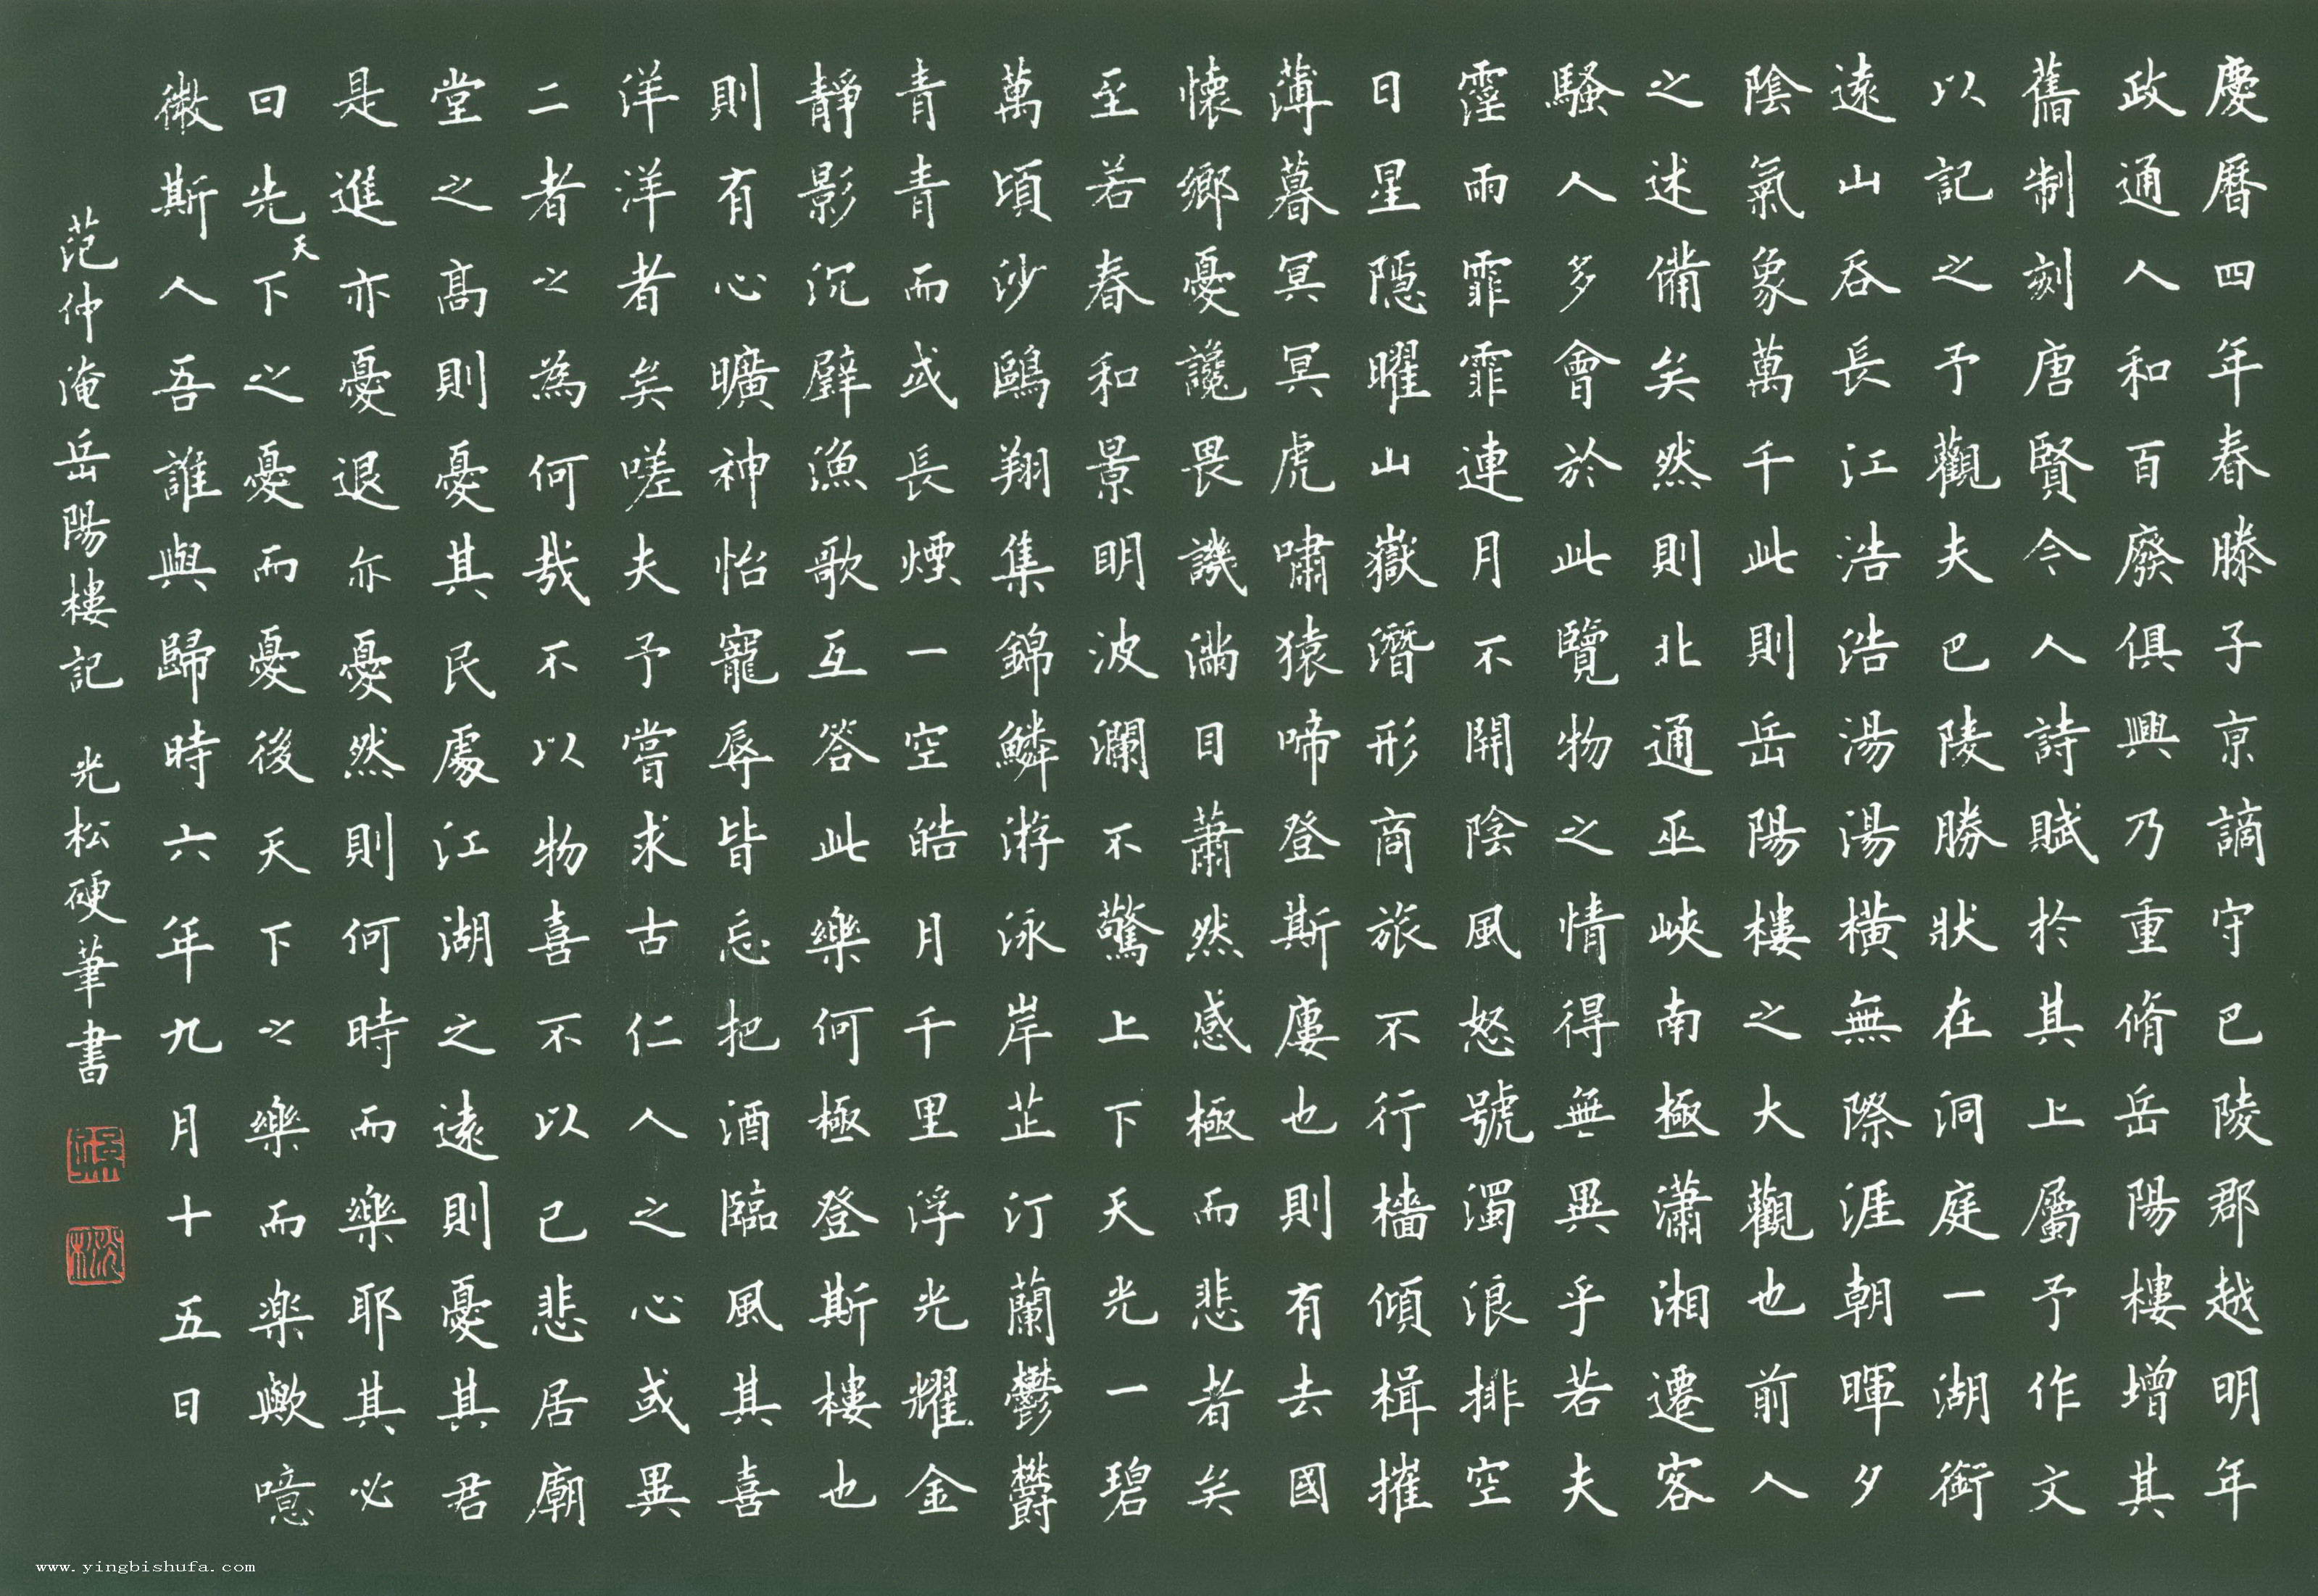 慶曆四年春滕子京謫守巴陵郡越明年
政通人和百廢俱興乃重脩岳陽樓增其
舊制刻唐賢今人詩賦於其上屬予作文
以記之予觀夫巴陵勝狀在洞庭一湖銜
遠山吞長江浩浩湯湯橫無際涯朝暉夕
陰氣象萬千此則岳陽樓之大觀也前人
之述備矣然則北通巫峽南極瀟湘遷客
騷人多會於此覽物之情得無異乎若夫
霪雨霏霏連月不開陰風怒號濁浪排空
日星隱曜山嶽潛形商旅不行檣傾楫摧
薄暮冥冥虎嘯猿啼登斯廔也則有去國
懷鄉憂讒畏譏滿目蕭然感極而悲者矣
至若春和景明波瀾不驚上下天光一碧
萬頃沙鷗翔集錦鱗游泳岸芷汀蘭鬱欝
青青而或長煙一空皓月千里浮光耀金
靜影沉璧漁歌互答此樂何極登斯樓也
則有心曠神怡寵辱皆忘把酒臨風其喜
洋洋者矣嗟夫予嘗求古仁人之心或異
二者之為何哉不以物喜不以己悲居廟
堂之高則憂其民處江湖之遠則憂其君
是進亦憂退亦憂然則何時而樂耶其必
曰先天下之憂而憂後天下之樂而樂歟噫
微斯人吾誰與歸時六年九月十五日
范仲淹岳陽樓記 光松硬筆書
www.yingbishufa.com